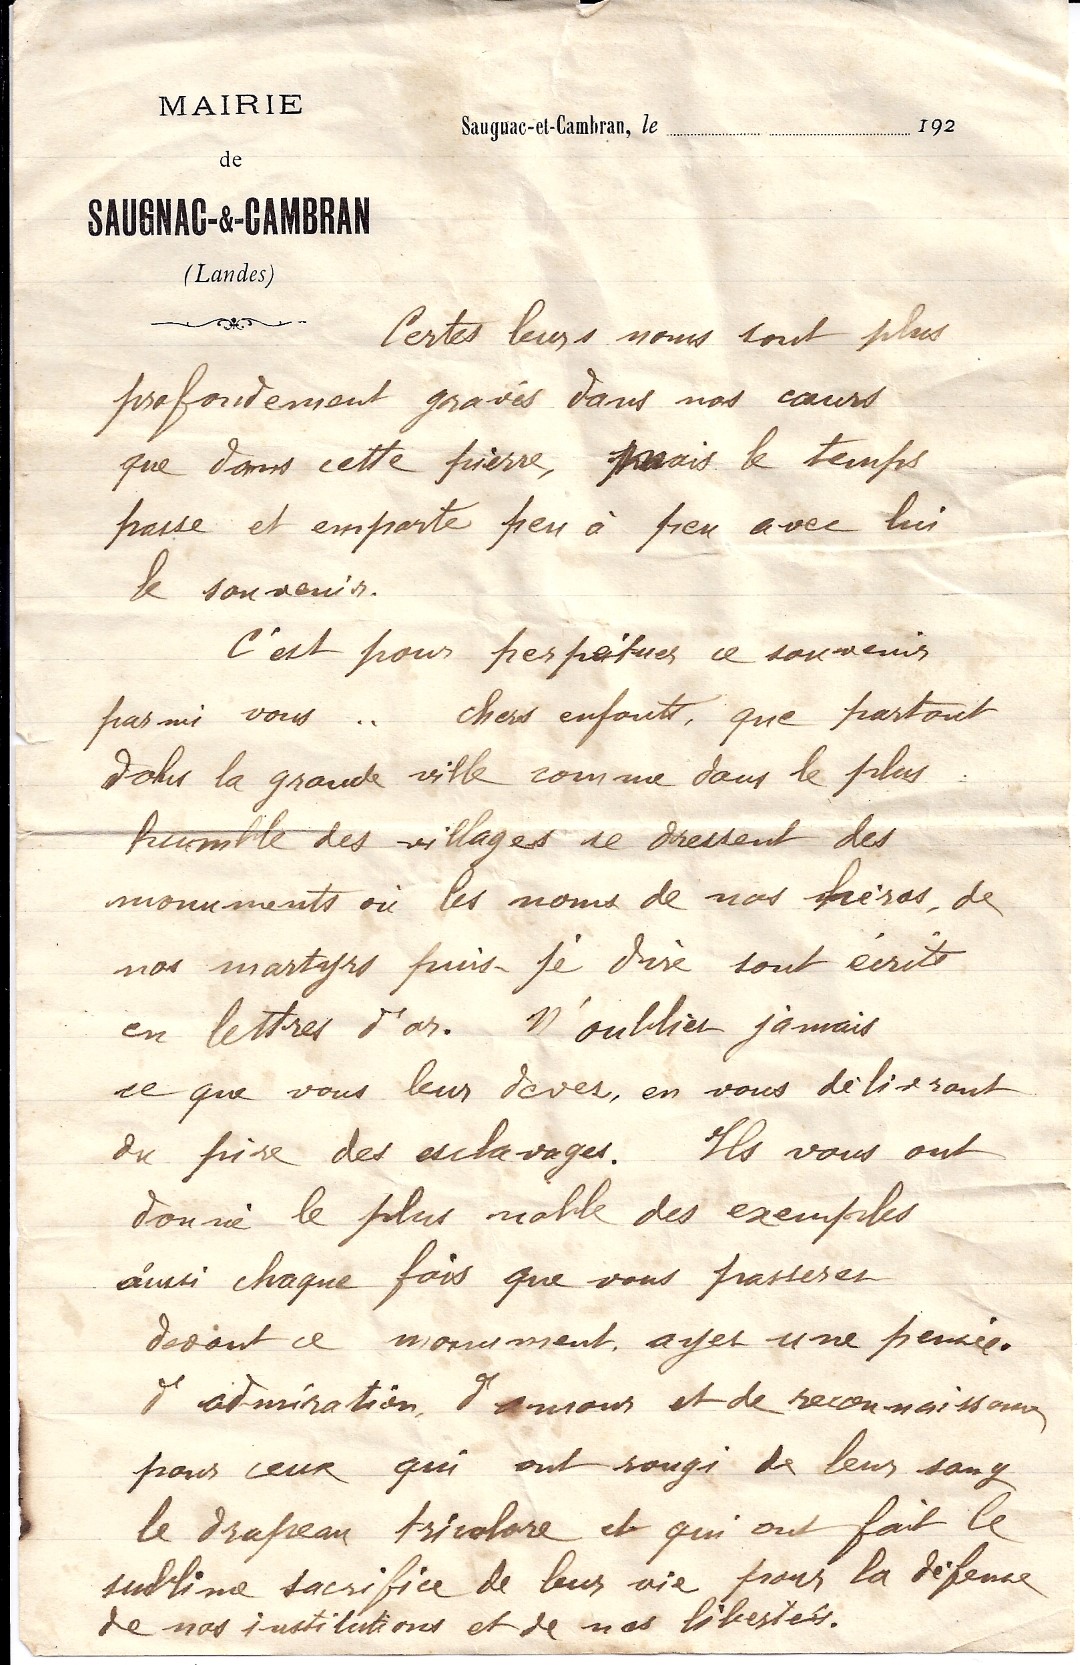 MAIRIE
de
SAUGNAC-&-CAMBRAN
(Landes)
Saugnac-et-Cambran, le 192
Certes leurs noms sont plus
profondement gravés dans nos cœurs
que dans cette pierre, mais le temps
passe et emporte peu à peu avec lui
le souvenir.
C'est pour perpétuer ce souvenir
parmi vous .. chers enfants, que partout
dans la grande ville comme dans le plus
humble des villages se dressent des
monuments où les noms de nos héros, de
nos martyrs puis-je dire sont écrits
en lettres d'or. N'oubliez jamais
ce que vous leur devez, en vous délivrant
du pire des esclavages. Ils vous ont
donné le plus noble des exemples
aussi chaque fois que vous passerez
devant ce monument, ayez une pensée
d'admiration, d'amour et de reconnaissance
pour ceux qui ont rougi de leur sang
le drapeau tricolore et qui ont fait le
sublime sacrifice de leur vie pour la défense
de nos institutions et de nos libertés.